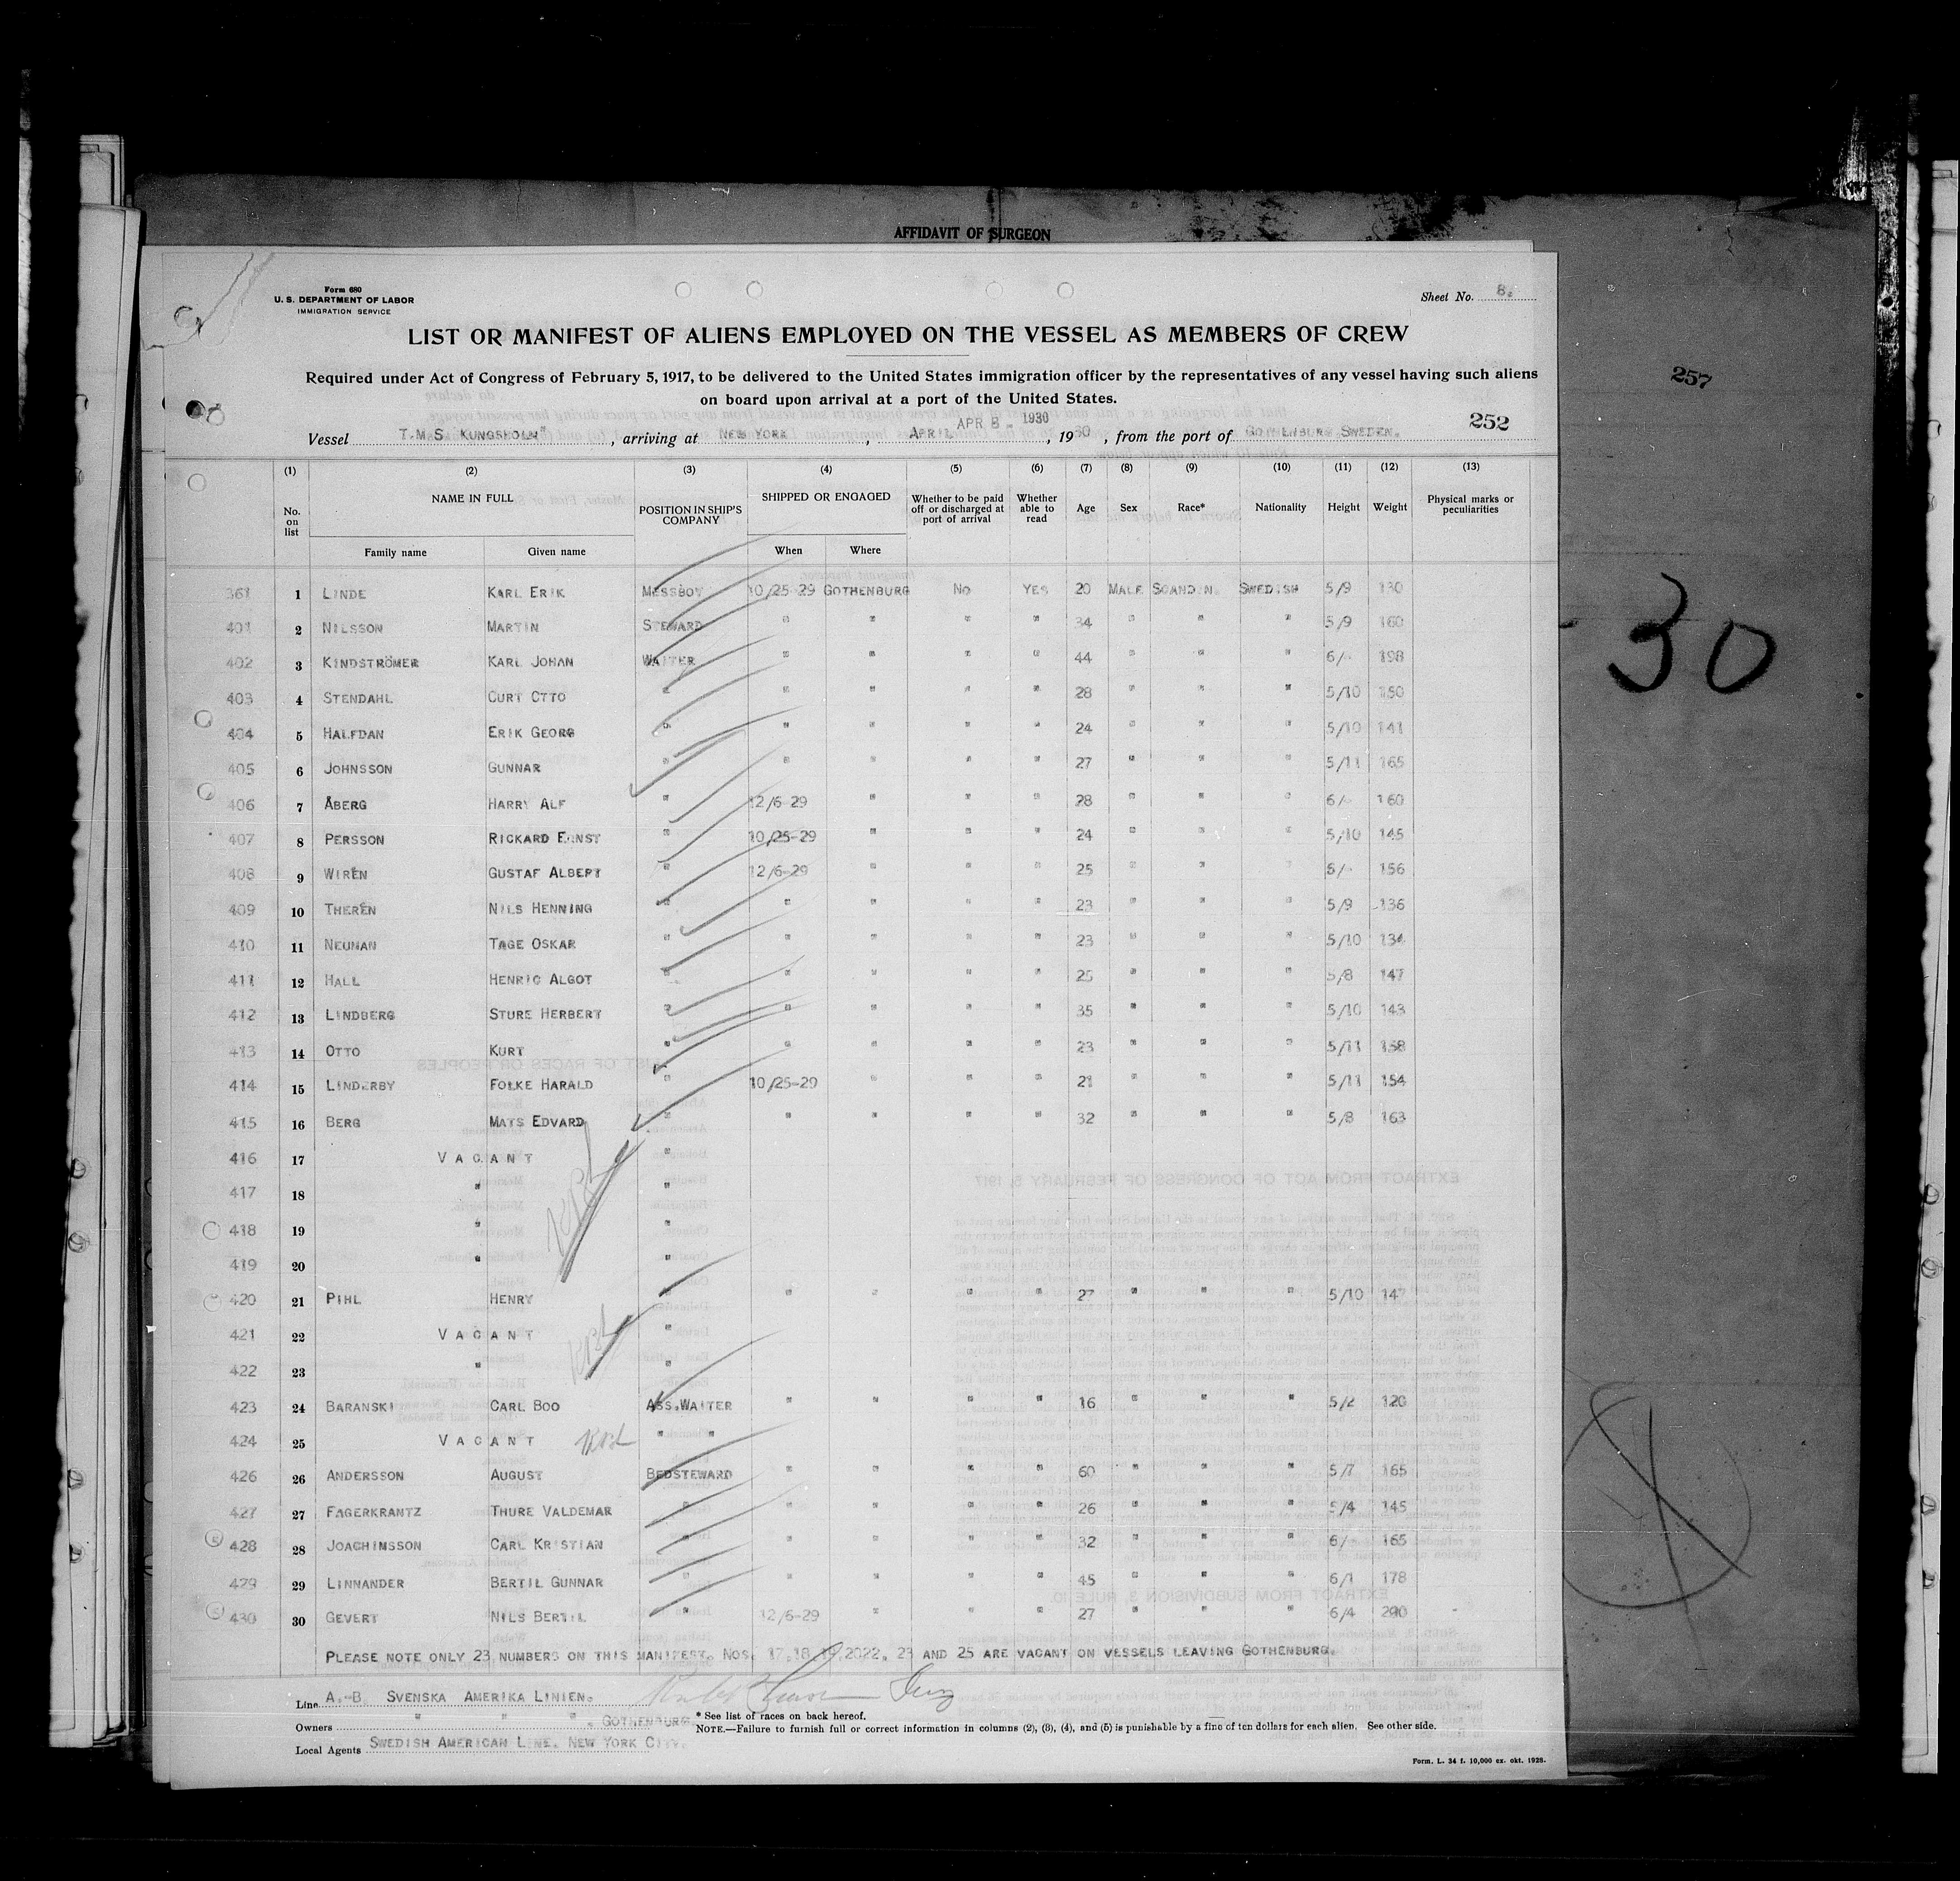 AFFIDAVIT OF SURGEON
Form 680
U. S. DEPARTMENT OF LABOR
IMMIGRATION SERVICE
Sheet No. 8.
LIST OR MANIFEST OF ALIENS EMPLOYED ON THE VESSEL AS MEMBERS OF CREW
Required under Act of Congress of February 5, 1917, to be delivered to the United States immigration officer by the representatives of any vessel having such aliens
on board upon arrival at a port of the United States.
257
252
APR 8 - 1930
Vessel T.M.S. KUNGSHOLM", arriving at NEW YORK, APRIL, 1930, from the port of GOTHENBURG SWEDEN.
(1) (2) (3) (4) (5) (6) (7) (8) (9) (10) (11) (12) (13)
No. on list NAME IN FULL POSITION IN SHIP'S COMPANY SHIPPED OR ENGAGED Whether to be paid off or discharged at port of arrival Whether able to read Age Sex Race* Nationality Height Weight Physical marks or peculiarities
Family name Given name When Where
361 1 LINDE KARL ERIK MESSBOY 10/25-29 GOTHENBURG NO YES 20 MALE SCANDIN. SWEDISH 5/9 130
401 2 NILSSON MARTIN STEWARD " " " " 34 " " " 5/9 160
402 3 KINDSTRÖMER KARL JOHAN WAITER " " " " 44 " " " 6/- 198
403 4 STENDAHL CURT OTTO " " " " " 28 " " " 5/10 150
404 5 HALFDAN ERIK GEORG " " " " " 24 " " " 5/10 141
405 6 JOHNSSON GUNNAR " " " " " 27 " " " 5/11 165
406 7 ÅBERG HARRY ALF " 12/6-29 " " " 28 " " " 6/- 160
407 8 PERSSON RICKARD ERNST " 10/25-29 " " " 24 " " " 5/10 145
408 9 WIRÉN GUSTAF ALBERT " 12/6-29 " " " 25 " " " 5/- 156
409 10 THERÉN NILS HENNING " " " " " 23 " " " 5/9 136
410 11 NEUMAN TAGE OSKAR " " " " " 23 " " " 5/10 134
411 12 HALL HENRIC ALGOT " " " " " 25 " " " 5/8 147
412 13 LINDBERG STURE HERBERT " " " " " 35 " " " 5/10 143
413 14 OTTO KURT " " " " " 23 " " " 5/11 158
414 15 LINDERBY FOLKE HARALD " 10/25-29 " " " 21 " " " 5/11 154
415 16 BERG MATS EDVARD " " " " " 32 " " " 5/8 163
416 17 VACANT "
417 18 " "
418 19 " "
419 20 " "
420 21 PIHL HENRY " " " " " 27 " " " 5/10 147
421 22 VACANT "
422 23 " "
423 24 BARANSKI CARL BOO ASS.WAITER " " " " 16 " " " 5/2 120
424 25 VACANT " "
426 26 ANDERSSON AUGUST BEDSTEWARD " " " " 60 " " " 5/7 165
427 27 FAGERKRANTZ THURE VALDEMAR " " " " " 26 " " " 5/4 145
428 28 JOACHIMSSON CARL KRISTIAN " " " " " 32 " " " 6/- 165
429 29 LINNANDER BERTIL GUNNAR " " " " " 45 " " " 6/1 178
430 30 GEVERT NILS BERTIL " 12/6-29 " " " 27 " " " 6/4 290
PLEASE NOTE ONLY 23 NUMBERS ON THIS MANIFEST. NOS. 17,18,19,2022, 23 AND 25 ARE VACANT ON VESSELS LEAVING GOTHENBURG.
Line A.-B. SVENSKA AMERIKA LINIEN.
Owners " " ". GOTHENBURG.
* See list of races on back hereof.
NOTE.—Failure to furnish full or correct information in columns (2), (3), (4), and (5) is punishable by a fine of ten dollars for each alien. See other side.
Local Agents SWEDISH AMERICAN LINE. NEW YORK CITY.
Form. L. 34 f. 10,000 ex. okt. 1928.
30